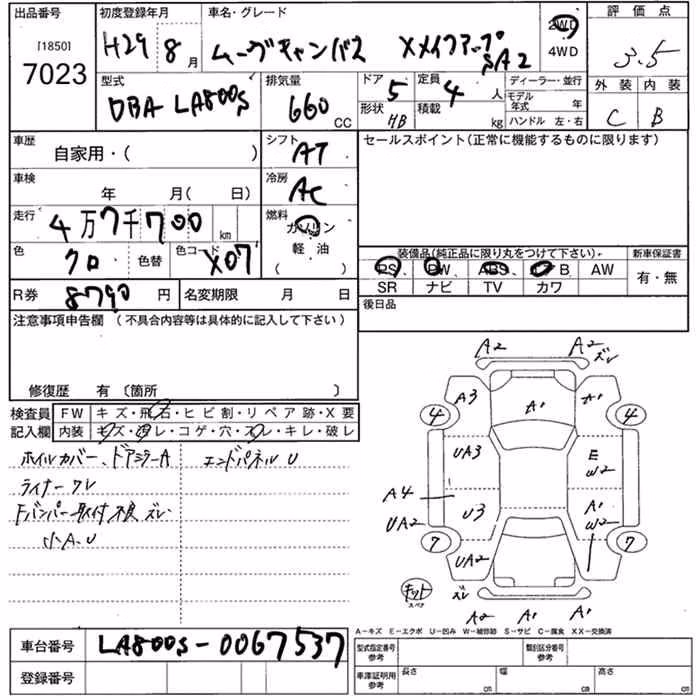 出品番号 初度登録年月 車名・グレード 評価点
[1850]
7023
H29 8 月 ムーヴキャンバス XXメイクアップ SA2
2WD
4WD
3.5
型式 排気量 ドア 定員 ディーラー・並行 外装 内装
DBA LA800S 660 CC 5 4 人
形状 積載 モデル年式 年
HB kg ハンドル 左・右
C B
車歴 シフト セールスポイント(正常に機能するものに限ります)
自家用・( ) AT
車検 冷房
年 月( 日) AC
走行 燃料
4万7千700 km ガソリン
軽油
( )
色 色替 色コード
クロ X07
装備品(純正品に限り丸をつけて下さい) 新車保証書
PS PW ABS エアB AW 有・無
SR ナビ TV カワ
R券 8790 円 名変期限 月 日
後日品
注意事項申告欄 (不具合内容等は具体的に記入して下さい)
修復歴 有 〔箇所 〕
検査員 FW キズ・飛石・ヒビ割・リペア跡・X要
記入欄 内装 キズ・凹レ・コゲ・穴・スレ・キレ・破レ
ホイルカバー、ドアミラーA エンドパネル U
ライナーワレ
Fバンパー取付不良 ズレ
小A、U
A2 A2 ズレ
A3 A1 A1
4 4
UA3 E
W2
A4
UA2 U3 A1
W2
7 UA2 7
キット
スペア
ズレ
A2 A1 A1
A−キズ E−エクボ U−凹み W−補修跡 S−サビ C−腐食 XX−交換済
車台番号 LA800S-0067537
型式指定番号 参考 類別区分番号 参考
登録番号
車庫証明用 参考 長さ cm 幅 cm 高さ cm